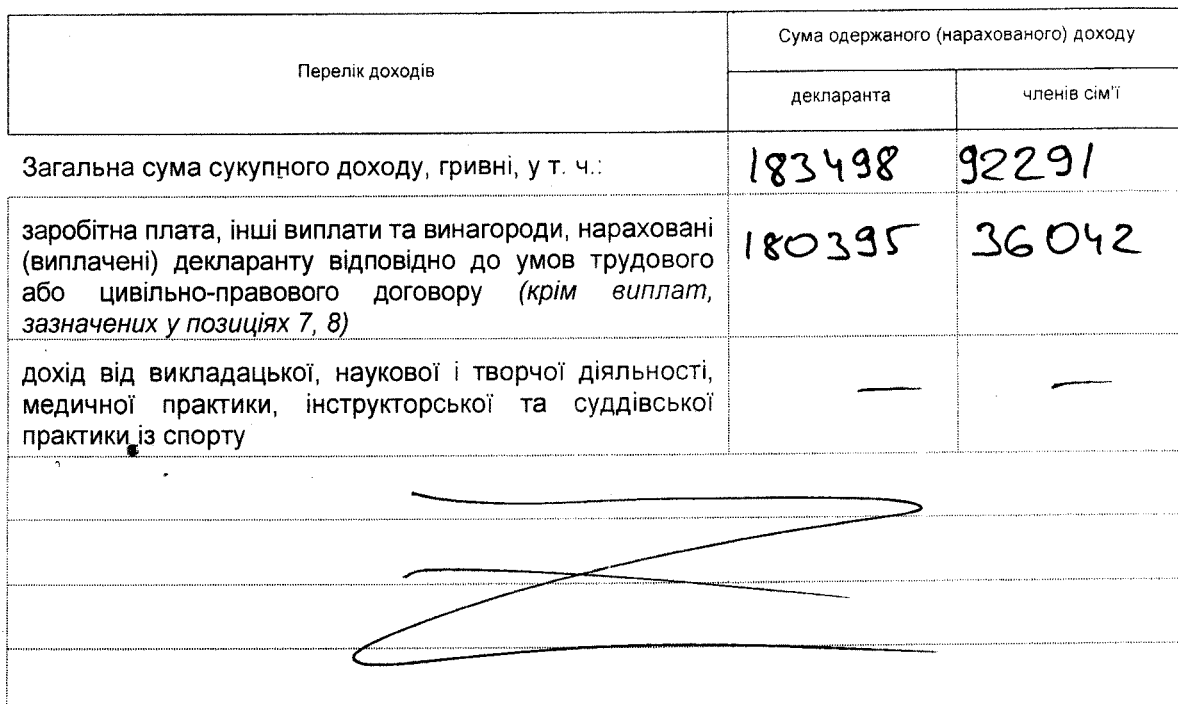 Перелік доходів
Сума одержаного (нарахованого) доходу
декларанта
членів сім'ї
Загальна сума сукупного доходу, гривні, у т. ч.:
183498
92291
заробітна плата, інші виплати та винагороди, нараховані
(виплачені) декларанту відповідно до умов трудового
або цивільно-правового договору (крім виплат,
зазначених у позиціях 7, 8)
180395
36042
дохід від викладацької, наукової і творчої діяльності,
медичної практики, інструкторської та суддівської
практики із спорту
—
—